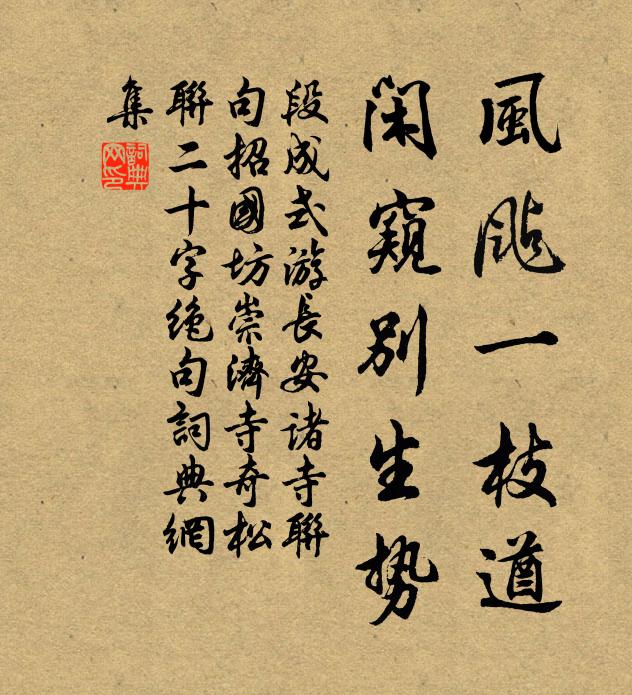 風颭一枝遒
閑窺別生势
段成式游長安诸寺聯
句招國坊崇濟寺奇松
聯二十字绝句詞典網
集
詞典網印